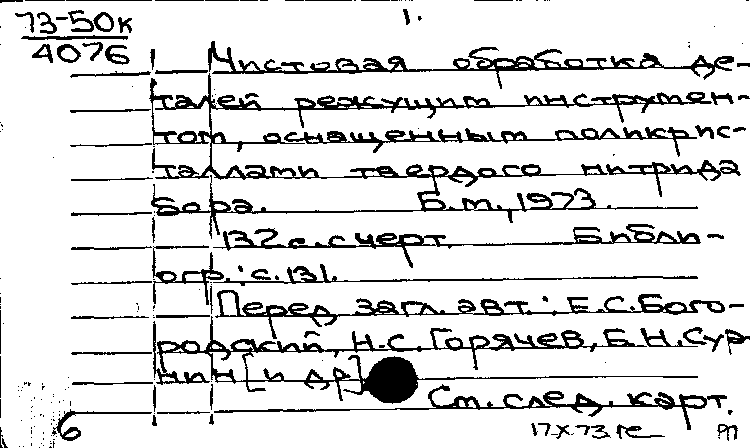 73-50к 1.
4076
Чистовая обработка де-
талей режущим инструмен-
том, оснащенным поликрис-
таллами твердого нитрида
бора. Б.м., 1973.
132 с. с черт. Библи-
огр.: с. 131.
Перед загл. авт.: Е.С. Бого-
родский, Н.С. Горячев, Б.Н. Сур-
нин [и др]
См. след. карт.
6 17 X 73